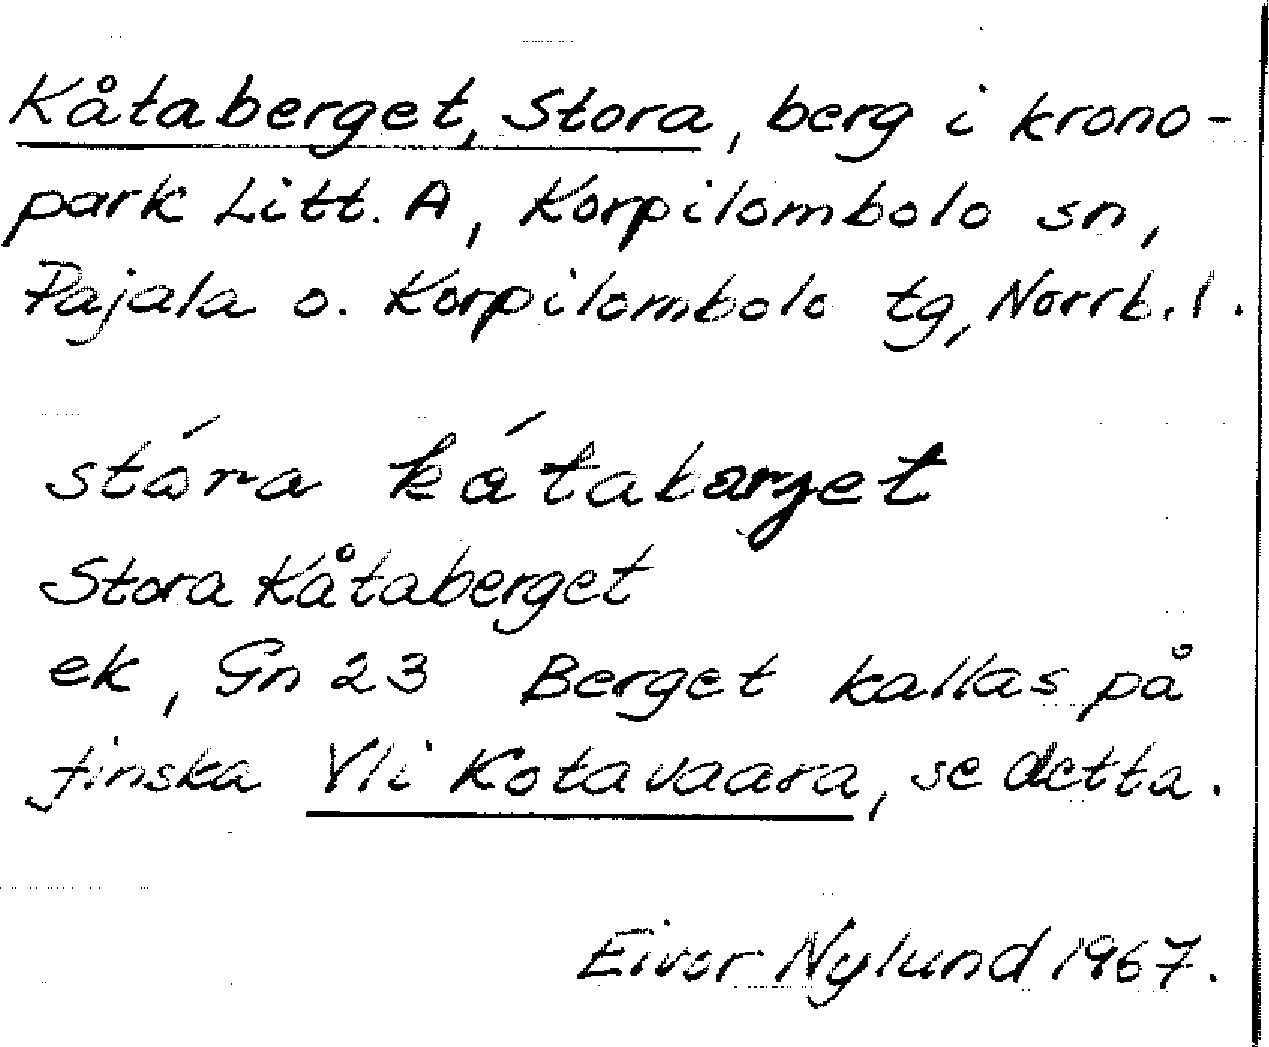 Kåtaberget, Stora, berg i krono-
park Litt. A, Korpilombolo sn,
Pajala o. Korpilombolo tg, Norrb. l.
stóra kátabarget
Stora Kåtaberget
ek, Gn 23 Berget kallas på
finska Yli Kotavaara, se detta.
Eivor Nylund 1967.